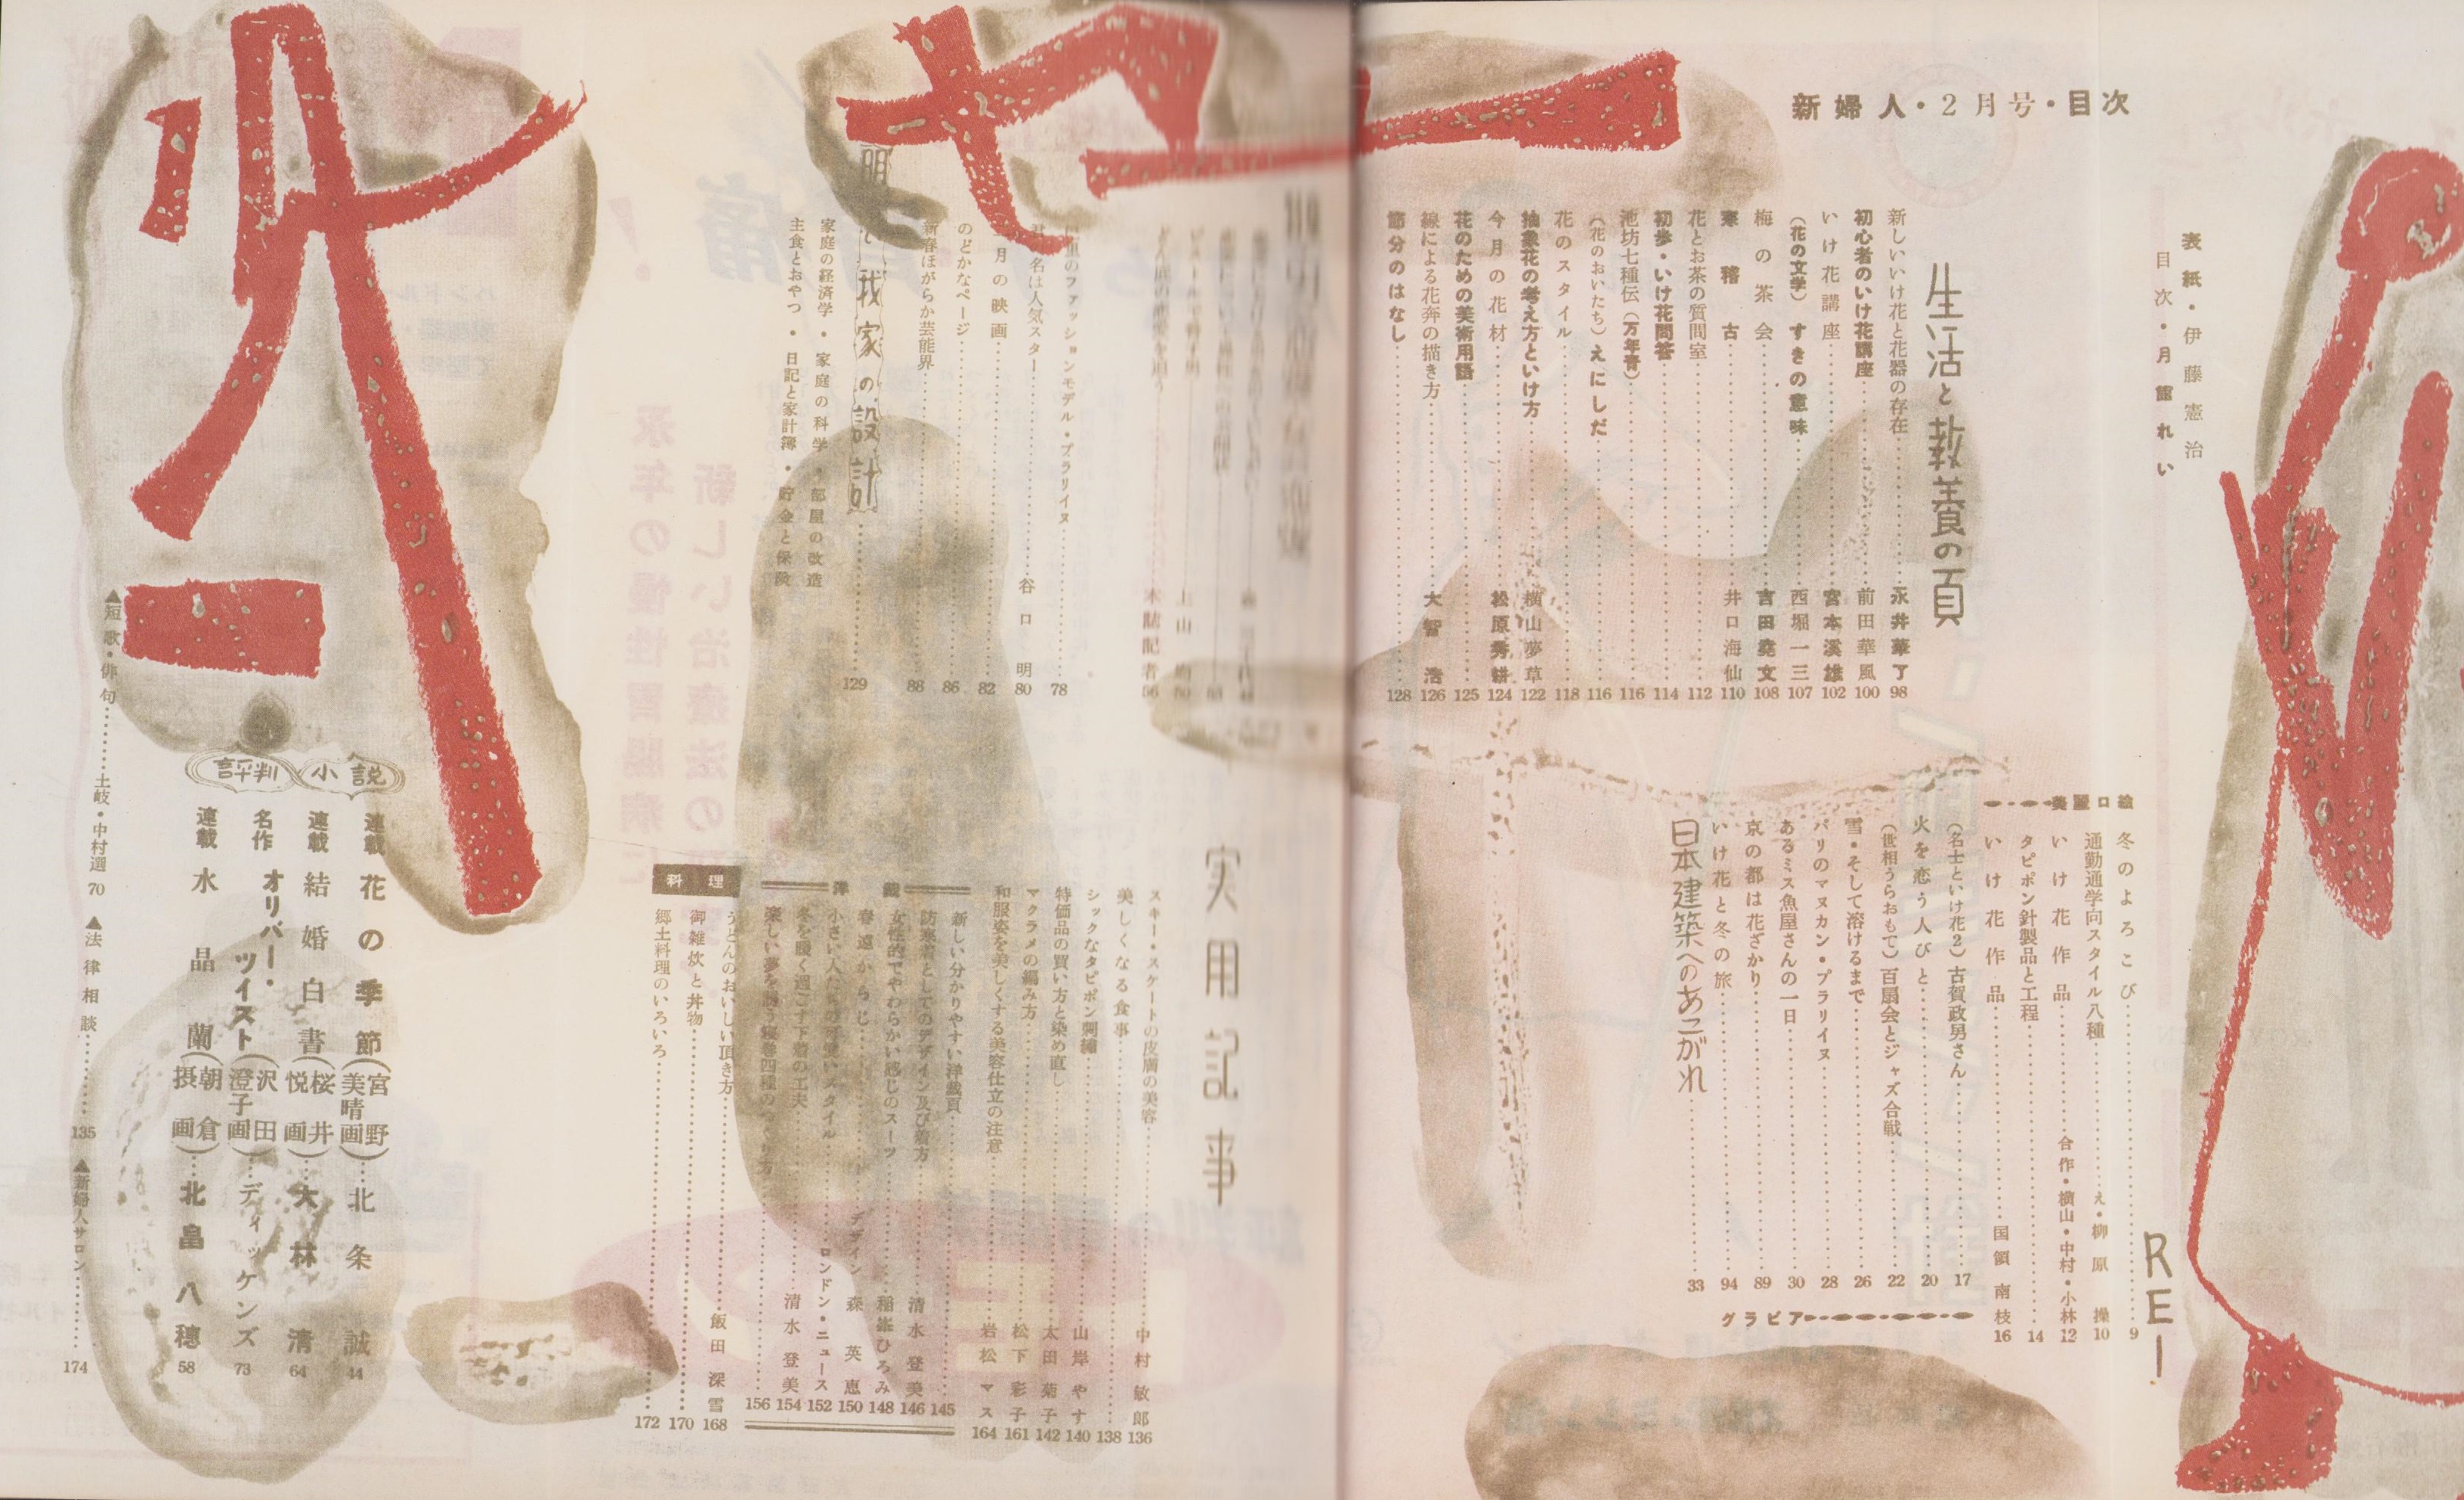 新婦人・2月号・目次
表紙・伊藤憲治
目次・月舘れい
生活と教養の頁
新しいいけ花と花器の存在 永井華了 98
初心者のいけ花講座 前田華風 100
いけ花講座 宮本溪雄 102
(花の文学) すきの意味 西堀一三 107
梅の茶会 吉田堯文 108
寒稽古 井口海仙 110
花とお茶の質問室 112
初歩・いけ花問答 114
池坊七種伝(万年青) 116
(花のおいたち)えにしだ 116
花のスタイル 118
抽象花の考え方といけ方 横山夢草 122
今月の花材 松原秀耕 124
花のための美術用語 125
線による花卉の描き方 大智浩 126
節分のはなし 128
美麗口絵
冬のよろこび 9
通勤通学向スタイル八種 え・柳原操 10
いけ花作品 合作・横山・中村・小林 12
タピポン針製品と工程 14
いけ花作品 国領南枝 16
(名士といけ花2) 古賀政男さん 17
火を恋う人びと 20
(世相うらおもて) 百扇会とジャズ合戦 22
雪・そして溶けるまで 26
パリのマヌカン・プラリイヌ 28
あるミス魚屋さんの一日 30
京の都は花ざかり 89
いけ花と冬の旅 94
日本建築へのあこがれ 33
グラビア
REI
里のファッションモデル・プラリイヌ 78
名は人気スター 谷口明 80
月の映画 82
のどかなページ 86
新春ほがらか芸能界 88
我家の設計 129
家庭の経済学・家庭の科学・部屋の改造
主食とおやつ・日記と家計簿・貯金と保険
実用記事
スキー・スケートの皮膚の美容 中村敏郎 136
美しくなる食事 138
シックなタピポン刺繍 山岸やす 140
特価品の買い方と染め直し 太田菊子 142
マクラメの編み方 松下彩子 161
和服姿を美しくする美容仕立の注意 岩松マス 164
洋裁
新しい分かりやすい洋裁頁 145
防寒着としてのデザイン及び着方 清水登美 146
女性的でやわらかい感じのスーツ 稲峯ひろみ 148
春遠からじ デザイン 森英恵 150
小さい人たちの可愛いスタイル ロンドン・ニュース 152
冬を暖く過ごす下着の工夫 清水登美 154
楽しい夢を誘う寝巻四種のつくり方 156
料理
うどんのおいしい頂き方 飯田深雪 168
御雑炊と丼物 170
郷土料理のいろいろ 172
評判小説
連載 花の季節(宮野美晴画) 北条誠 44
連載 結婚白書(桜井悦画) 大林清 64
名作 オリバー・ツイスト(沢田澄子画) ディッケンズ 73
連載 水晶蘭(朝倉摂画) 北畠八穂 58
▲短歌・俳句 土岐・中村選 70
▲法律相談 135
▲新婦人サロン 174